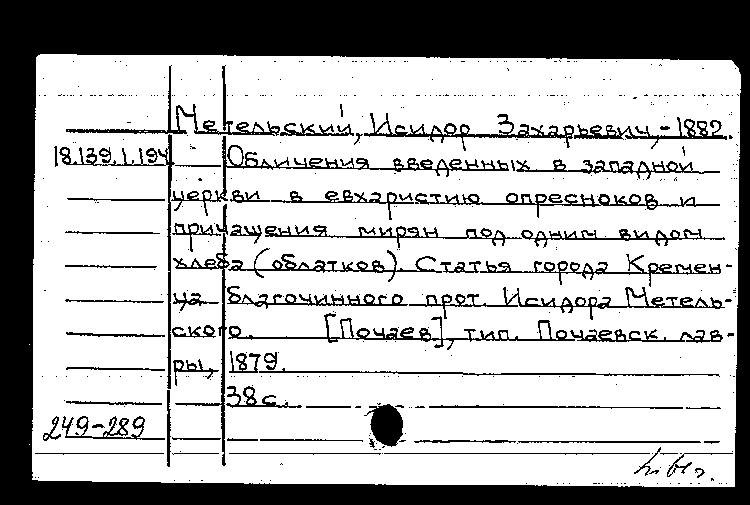 Метельский, Исидор Захарьевич, - 1882.
18.139.1.194 Обличения введенных в западной
церкви в евхаристию опресноков и
причащения мирян под одним видом
хлеба (облатков). Статья города Кремен-
ца благочинного прот. Исидора Метель-
ского. [Почаев], тип. Почаевск. лав-
ры, 1879.
38 с.
249-289